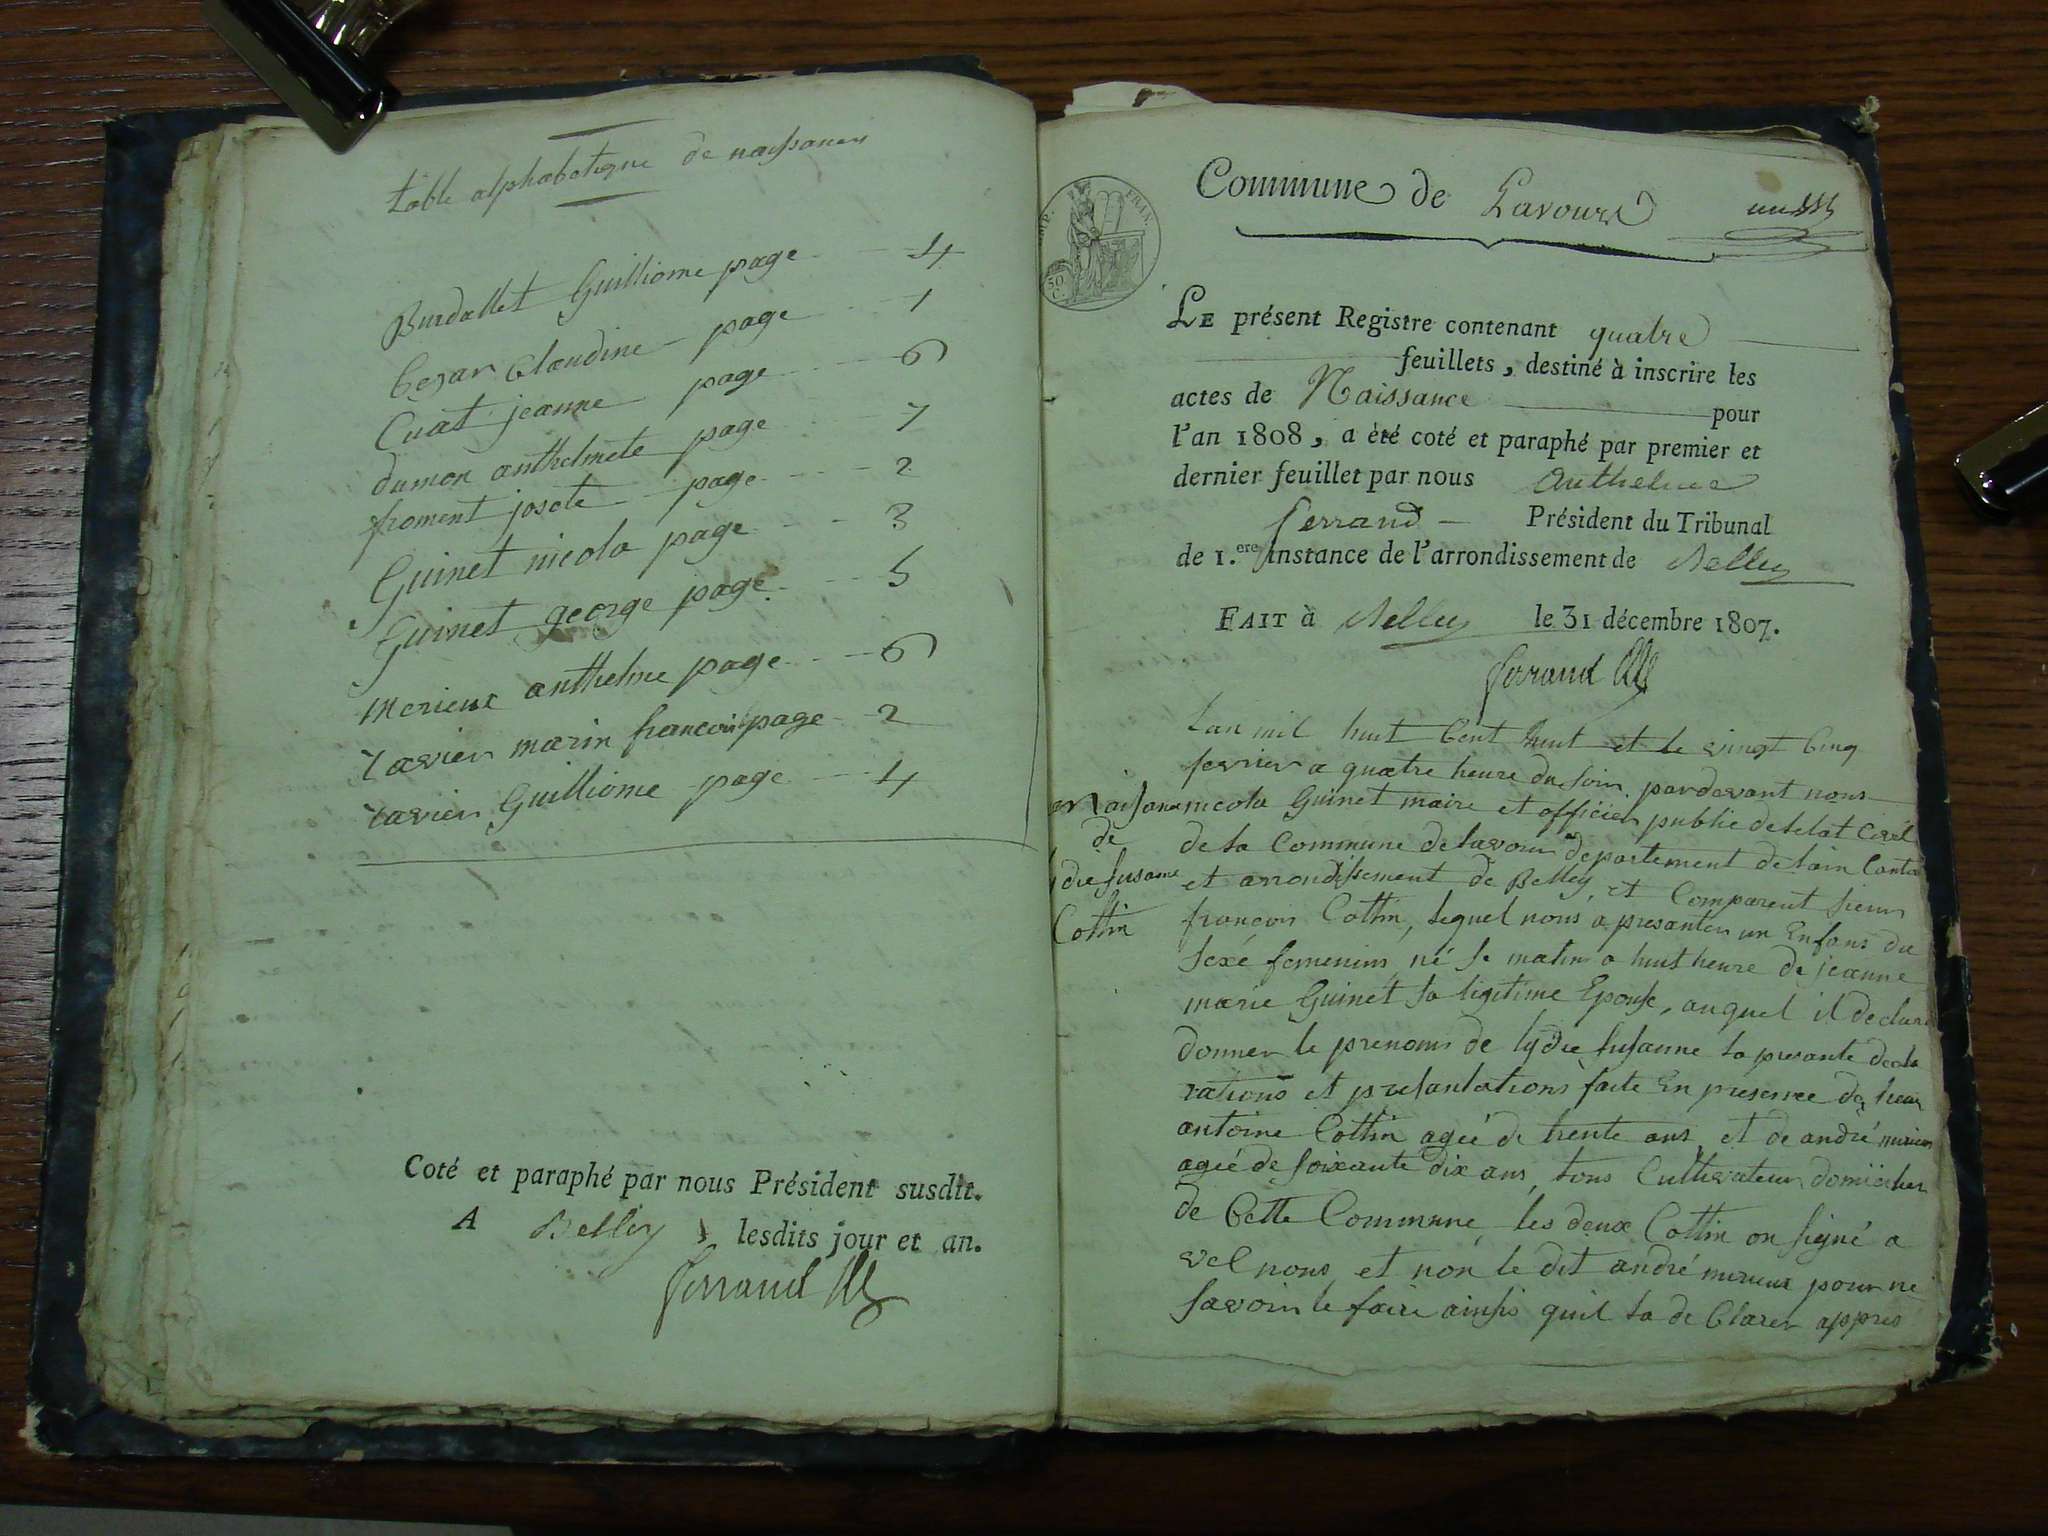 table alphabetique de naissances
Burdallet Guilliome page 4
Cezar Claudine page 1
Cuat jeanne page 6
dumon anthelmete page 7
froment josete page 2
Guinet nicola page 3
Guinet george page 5
merieux anthelme page 6
Xavier marin francois page 2
Xavier Guilliome page 4
Coté et paraphé par nous Président susdit.
A Belley lesdits jour et an.
Ferrand
Commune de Lavours
IMP. FRAN.
50 C.
Le présent Registre contenant quatre
feuillets, destiné à inscrire les
actes de Naissance pour
l'an 1808, a été coté et paraphé par premier et
dernier feuillet par nous Anthelme
ferrand Président du Tribunal
de 1.ere instance de l'arrondissement de Belley
Fait à Belley le 31 décembre 1807.
Ferrand
Lan mil huit Cent huit et le vingt Cinq
fevrier a quatre heure du soir, pardevant nous
nicola Guinet maire et officier public de lelat Civil
de la Commune de lavour departement de lain Canto
et arrondissement de Belley, et Comparent sieur
françois Cottin, lequel nous a presanter un Enfans du
sexé femenins, né le matin a huit heure de jeanne
marie Guinet sa ligitime Epouse, auquel il declare
donner le prenoms de lydie susanne la presante decla
rations et presantations faite En presence de
antoine Cottin ageé de trente ans, et de andré
ageé de soixante dix ans, tous Cultivateur domicilier
de Cette Commune, les deux Cottin on signé a
vel nous, et non le dit andré merieux pour ne
savoir le faire ainsis quil la de Clarer appres
Naissance
de
lydie susanne
Cottin